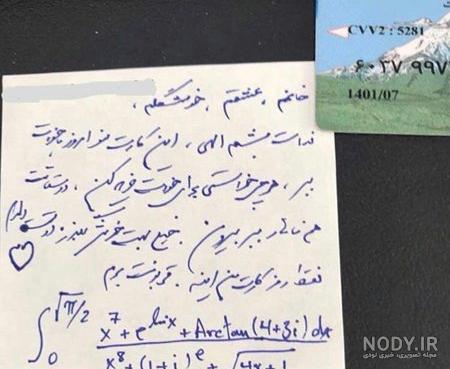 CVV2 : 5281
۶۰۳۷ ۹۹۷
1401/07
خانم ، عشقم ، خوشگلم ،
فدات بشم الهی ، این کارت منو امروز با خودت
ببر ، هرچی خواستی برای خودت خرید کن ، دوستاتت
هم ناهار ببر بیرون . خیلی بهت خوش بگذره دوستت دارم
فقط رمز کارت من اینه . قربونت برم
∫ 0 √π/2 x⁷ + e^lnix + Arctan(4+3i) dx
x⁸ + (1+i)^e + √4x+1
NODY.IR
مجله تصویری، خبری نودی